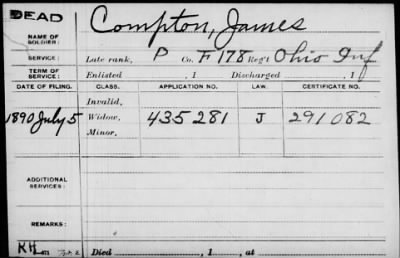 DEAD
NAME OF SOLDIER: Compton, James
SERVICE: Late rank, P Co. F 178 Reg't Ohio Inf
TERM OF SERVICE: Enlisted , 1 Discharged , 1
DATE OF FILING. CLASS. APPLICATION NO. LAW. CERTIFICATE NO.
Invalid,
1890 July 5 Widow, 435281 J 291082
Minor,
ADDITIONAL SERVICES:
REMARKS:
KH
Died , 1 , at